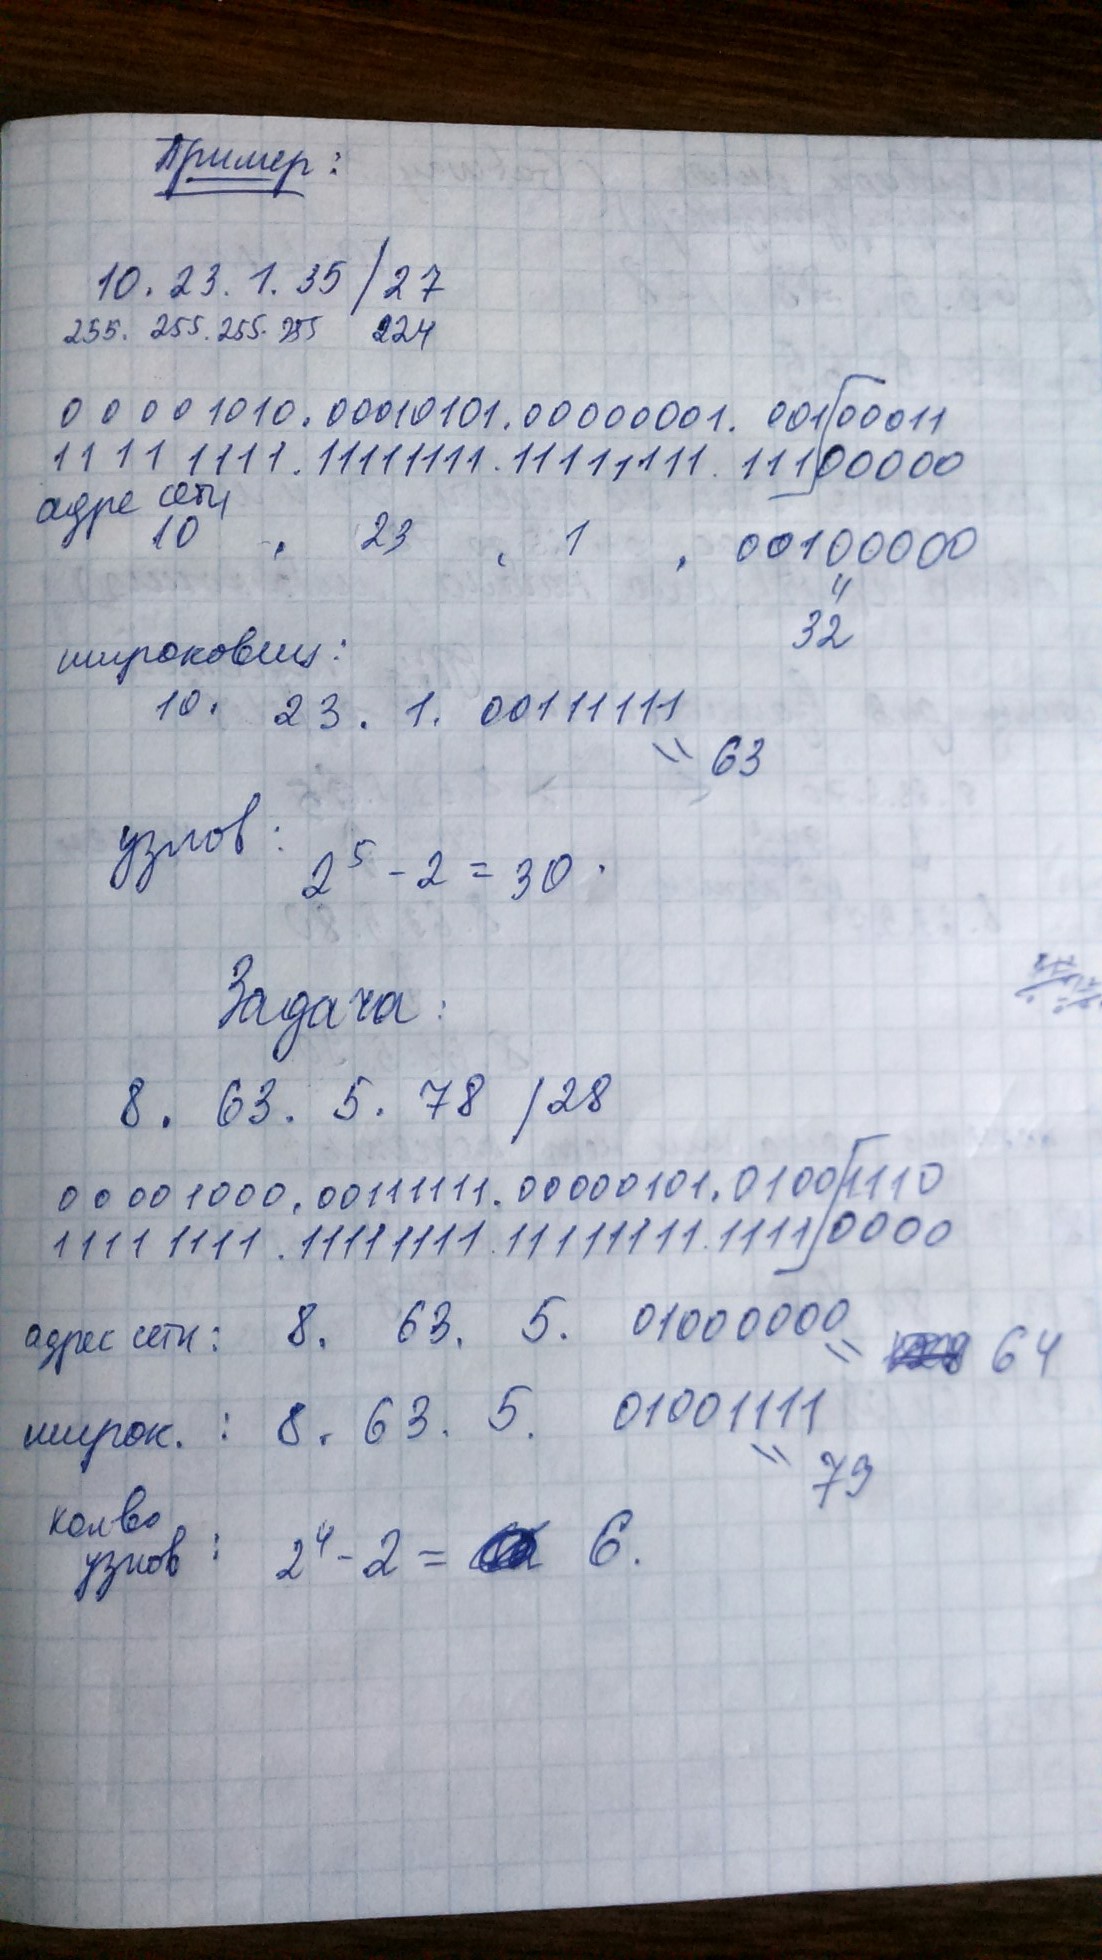 Пример:
10. 23. 1. 35 / 27
255. 255. 255. 255 224
0 0 0 0 1010. 00010101. 00000001. 001 00011
11 11 1111. 11111111. 11111111. 111 00000
адре сети
10 . 23 . 1 . 00100000
"
32
широковещ:
10. 23. 1. 00111111
" 63
узлов:
2⁵ - 2 = 30.
Задача:
8. 63. 5. 78 / 28
0 0 0 0 1000. 00111111. 00000101. 0100 1110
1111 1111. 11111111. 11111111. 1111 0000
адрес сети: 8. 63. 5. 01000000
" 64
широк. : 8. 63. 5. 01001111
" 79
кол во
узлов : 2⁴ - 2 = 6.